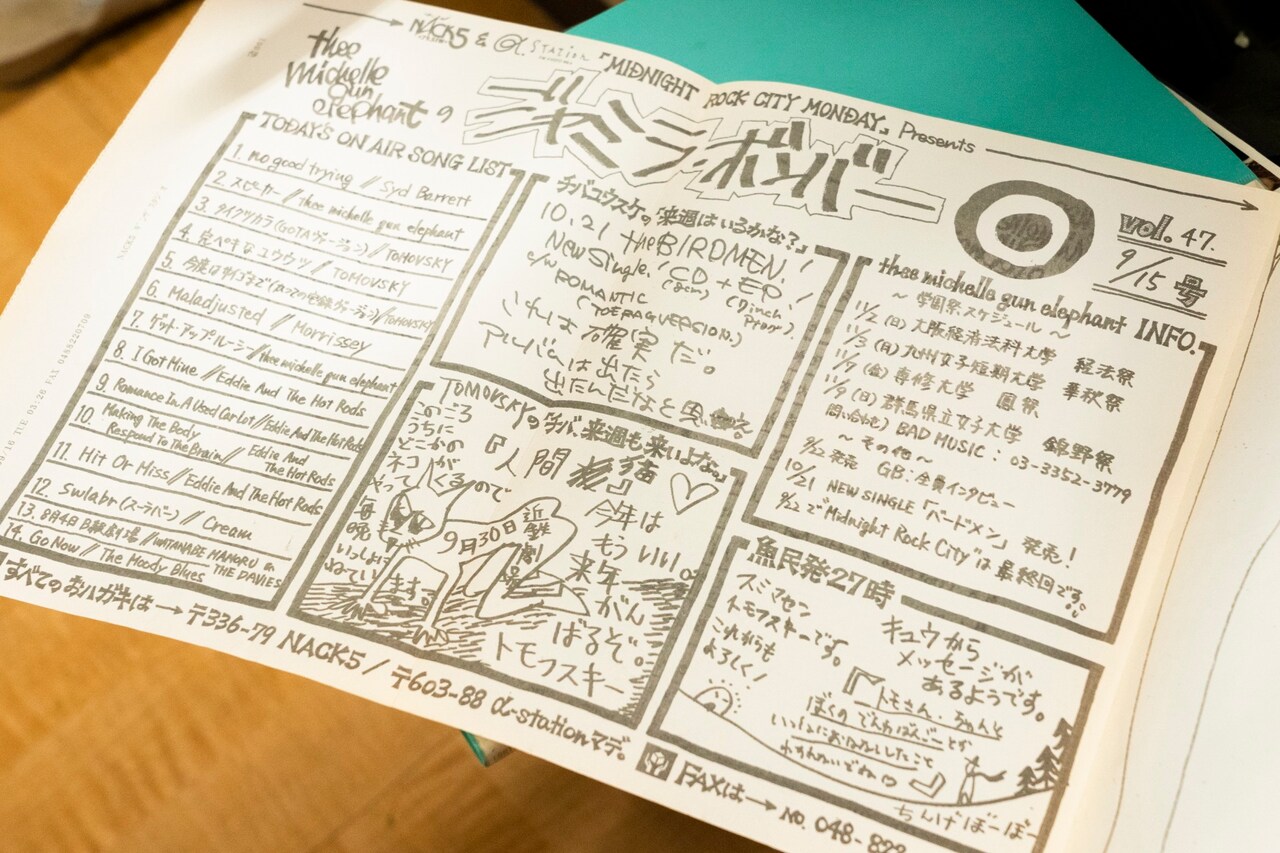 NACK5 & α STATION 「MIDNIGHT ROCK CITY MONDAY」 Presents
thee michelle gun elephant の
ジャミラ・ボンバー
vol. 47.
9/15 号
TODAY'S ON AIR SONG LIST
1. no good trying // Syd Barrett
2. スピーカー // thee michelle gun elephant
3. タイクツカラ (GOTAヴァージョン) // TOMOVSKY
4. 完ペキなユウウツ // TOMOVSKY
5. 今度は // TOMOVSKY
6. Maladjusted // Morrissey
7. ゲット・アップ・ルーシー // thee michelle gun elephant
8. I Got Mine // Eddie And The Hot Rods
9. Romance In A Used Car Lot // Eddie And The Hot Rods
10. Making The Body Respond To The Brain // Eddie And The Hot Rods
11. Hit Or Miss // Eddie And The Hot Rods
12. Swlabr (スーラバー) // Cream
13. 8月4日 // WATANABE MAMORU & THE DAVIES
14. Go Now // The Moody Blues
チバユウスケの「来週はいるかな?」
10.21 the BIRDMEN!
New Single! (CD + EP!
(8cm) (7inch
c/w ROMANTIC
(TOERAG VERSION)
これは確実だ。
アルバムは出たら
出たんだなと思え。
TOMOVSKYの「チバ、来週も来いよな。」
『人間猫』
このごろ
うちに
どこかの
ネコが
やってくるので
毎晩
いっしょに
ねてい
ます。
9月30日 近鉄劇場
今年は
もういい。
来年
がん
ばるぞ。
トモフスキー
thee michelle gun elephant INFO.
〜 学園祭スケジュール 〜
11/2 (日) 大阪経済法科大学 経法祭
11/3 (月) 九州女子短期大学 華秋祭
11/7 (金) 専修大学 鳳祭
11/9 (日) 群馬県立女子大学 錦野祭
問い合わせ) BAD MUSIC : 03-3352-3779
〜 その他 〜
9/22 発売 GB:全員インタビュー
10/21 NEW SINGLE 「バードメン」 発売!
9/22 で "Midnight Rock City" は最終回です。
魚民発27時
スミマセン
トモフスキーです。
これからも
よろしく!
キュウから
メッセージが
あるようです。
『トモさん、ちゃんと
ぼくの でんわばんごーとか
いっしょにおはなししたこと
わすれないでね
ちんげぼーぼー
すべてのおハガキは → 〒336-79 NACK5 / 〒603-88 α-station マデ。
FAXは → NO. 048-822